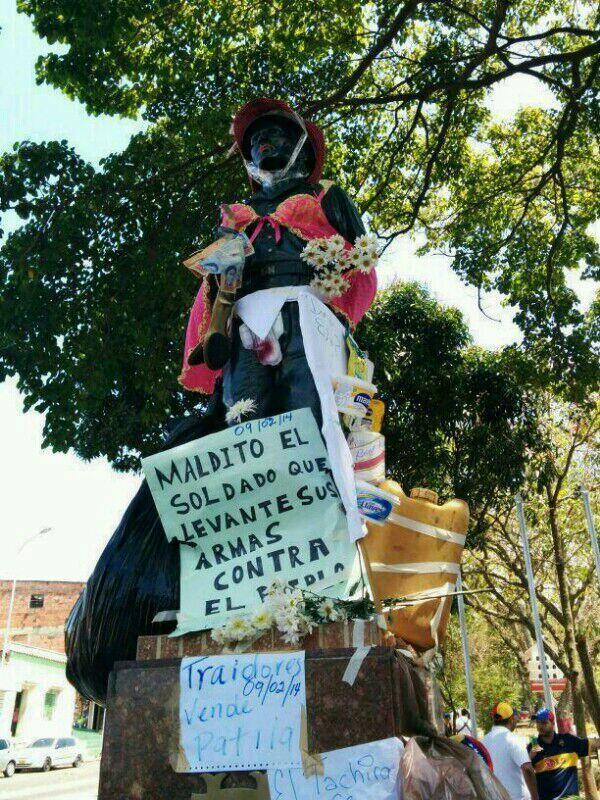 09/02/14
MALDITO EL
SOLDADO QUE
LEVANTE SUS
ARMAS
CONTRA
EL PUEBLO
Traidores
09/02/14
Vende
Patria
El Tachira